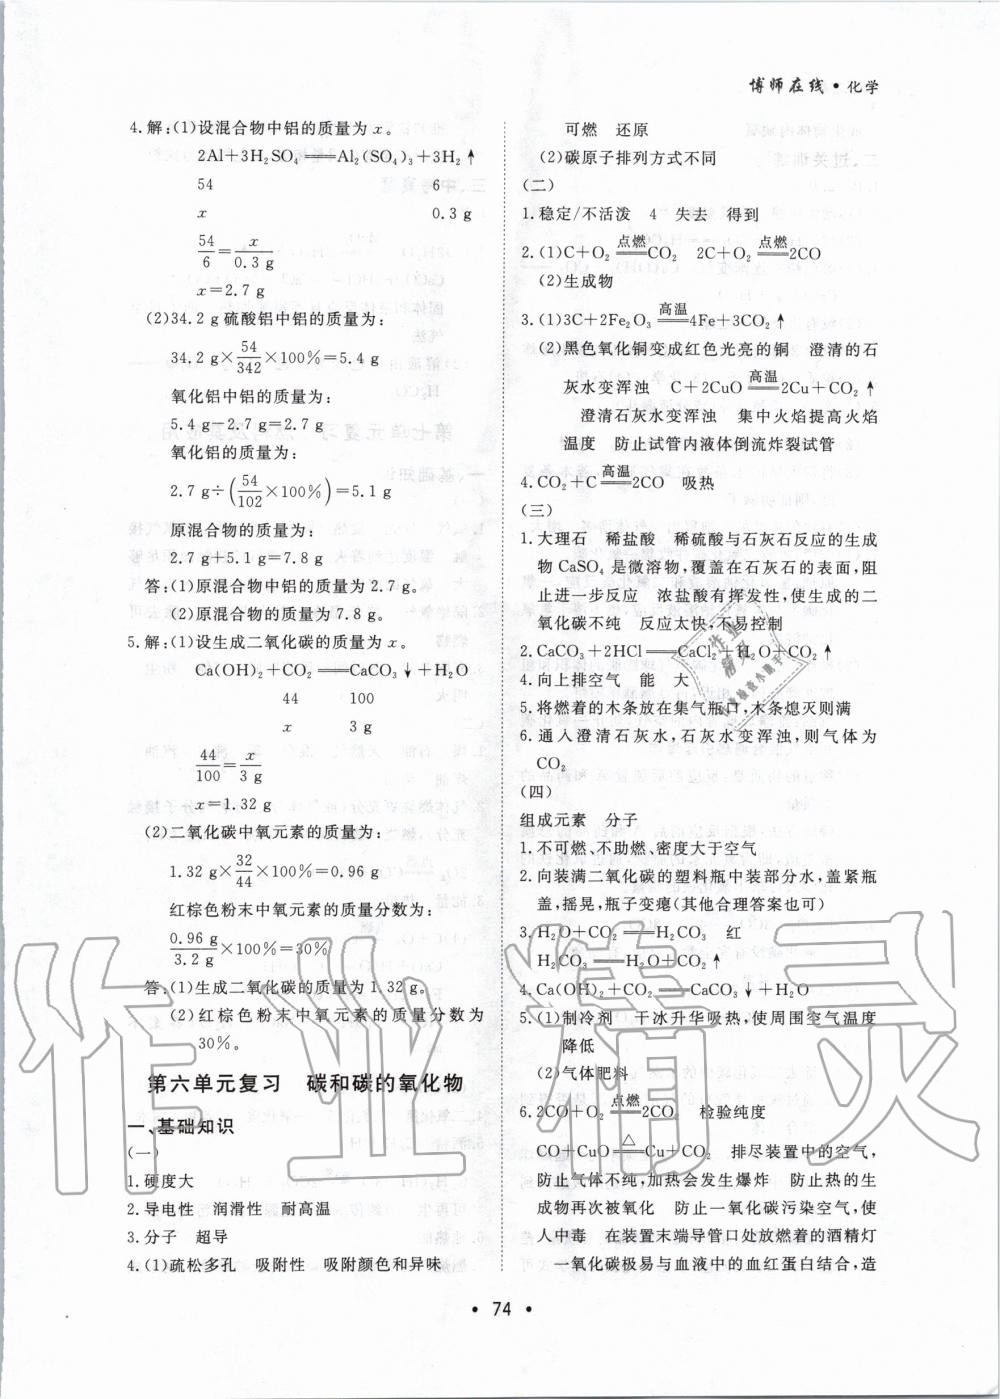 博师在线·化学
4.解:(1)设混合物中铝的质量为x。
2Al+3H₂SO₄══Al₂(SO₄)₃+3H₂↑
54 6
x 0.3 g
54/6=x/0.3 g
x=2.7 g
(2)34.2 g硫酸铝中铝的质量为:
34.2 g×54/342×100%=5.4 g
氧化铝中铝的质量为:
5.4 g-2.7 g=2.7 g
氧化铝的质量为:
2.7 g÷(54/102×100%)=5.1 g
原混合物的质量为:
2.7 g+5.1 g=7.8 g
答:(1)原混合物中铝的质量为2.7 g。
(2)原混合物的质量为7.8 g。
5.解:(1)设生成二氧化碳的质量为x。
Ca(OH)₂+CO₂══CaCO₃↓+H₂O
44 100
x 3 g
44/100=x/3 g
x=1.32 g
(2)二氧化碳中氧元素的质量为:
1.32 g×32/44×100%=0.96 g
红棕色粉末中氧元素的质量分数为:
0.96 g/3.2 g×100%=30%
答:(1)生成二氧化碳的质量为1.32 g。
(2)红棕色粉末中氧元素的质量分数为
30%。
第六单元复习 碳和碳的氧化物
一、基础知识
(一)
1.硬度大
2.导电性 润滑性 耐高温
3.分子 超导
4.(1)疏松多孔 吸附性 吸附颜色和异味
可燃 还原
(2)碳原子排列方式不同
(二)
1.稳定/不活泼 4 失去 得到
2.(1)C+O₂ 点燃══CO₂ 2C+O₂ 点燃══2CO
(2)生成物
3.(1)3C+2Fe₂O₃ 高温══4Fe+3CO₂↑
(2)黑色氧化铜变成红色光亮的铜 澄清的石
灰水变浑浊 C+2CuO 高温══2Cu+CO₂↑
澄清石灰水变浑浊 集中火焰提高火焰
温度 防止试管内液体倒流炸裂试管
4.CO₂+C 高温══2CO 吸热
(三)
1.大理石 稀盐酸 稀硫酸与石灰石反应的生成
物CaSO₄是微溶物,覆盖在石灰石的表面,阻
止进一步反应 浓盐酸有挥发性,使生成的二
氧化碳不纯 反应太快,不易控制
2.CaCO₃+2HCl══CaCl₂+H₂O+CO₂↑
4.向上排空气 能 大
5.将燃着的木条放在集气瓶口,木条熄灭则满
6.通入澄清石灰水,石灰水变浑浊,则气体为
CO₂
(四)
组成元素 分子
1.不可燃、不助燃、密度大于空气
2.向装满二氧化碳的塑料瓶中装部分水,盖紧瓶
盖,摇晃,瓶子变瘪(其他合理答案也可)
3.H₂O+CO₂══H₂CO₃ 红
H₂CO₃══H₂O+CO₂↑
4.Ca(OH)₂+CO₂══CaCO₃↓+H₂O
5.(1)制冷剂 干冰升华吸热,使周围空气温度
降低
(2)气体肥料
6.2CO+O₂ 点燃══2CO₂ 检验纯度
CO+CuO △══Cu+CO₂ 排尽装置中的空气,
防止气体不纯,加热会发生爆炸 防止热的生
成物再次被氧化 防止一氧化碳污染空气,使
人中毒 在装置末端导管口处放燃着的酒精灯
一氧化碳极易与血液中的血红蛋白结合,造
• 74 •
作业精灵